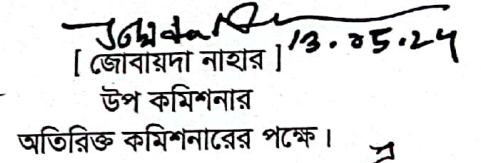 13.05.24
[ জোবায়দা নাহার ]
উপ কমিশনার
অতিরিক্ত কমিশনারের পক্ষে।